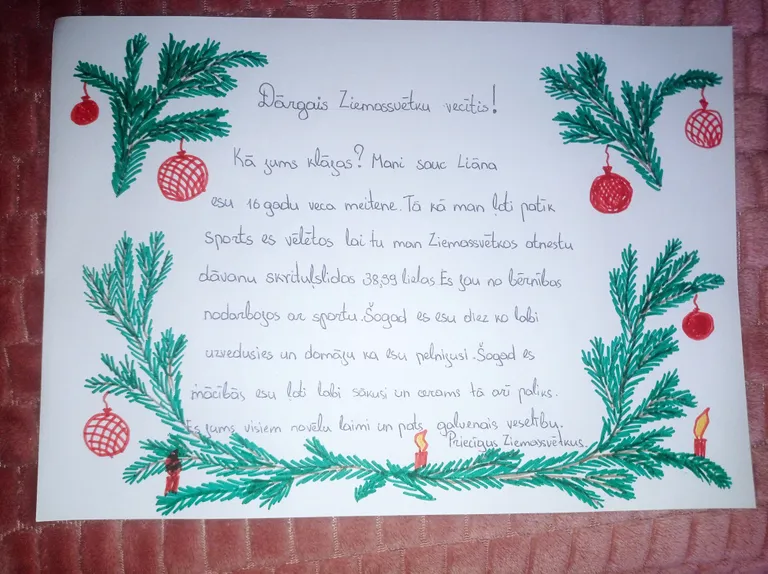 Dārgais Ziemassvētku vecītis!
Kā jums klājas? Mani sauc Liāna
esu 16 gadu veca meitene. Tā kā man ļoti patīk
sports es vēlētos lai tu man Ziemassvētkos atnestu
dāvanu skrituļslidas 38,39 lielas. Es jau no bērnības
nodarbojos ar sportu. Šogad es esu diez ko labi
uzvedusies un domāju ka esu pelnijusi. Šogad es
mācībās esu ļoti labi sākusi un cerams tā arī paliks.
Es jums visiem novēlu laimi un pats galvenais veselību.
Priecīgus Ziemassvētkus.